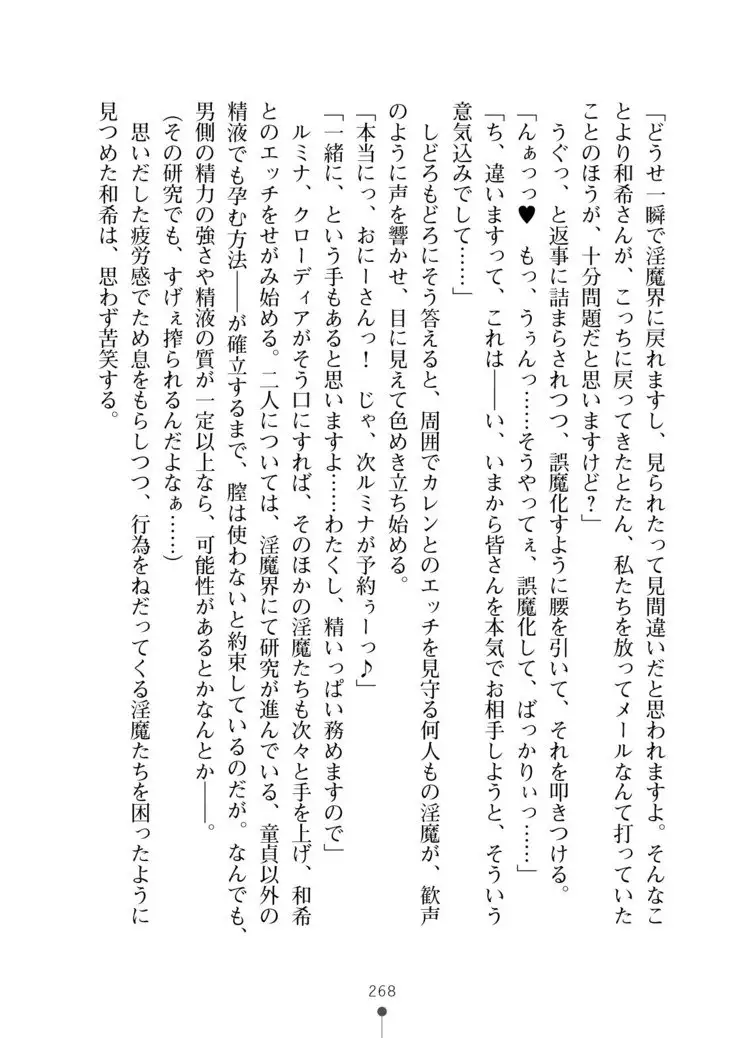 「どうせ一瞬で淫魔界に戻れますし、見られたって見間違いだと思われますよ。そんなこ
とより和希さんが、こっちに戻ってきたとたん、私たちを放ってメールなんて打っていた
ことのほうが、十分問題だと思いますけど？」
うぐっ、と返事に詰まらされつつ、誤魔化すように腰を引いて、それを叩きつける。
「んぁっっ♥　もっ、うぅんっ……そうやってぇ、誤魔化して、ばっかりぃっ……」
「ち、違いますって、これは――い、いまから皆さんを本気でお相手しようと、そういう
意気込みでして……」
しどろもどろにそう答えると、周囲でカレンとのエッチを見守る何人もの淫魔が、歓声
のように声を響かせ、目に見えて色めき立ち始める。
「本当にっ、おにーさんっ！　じゃ、次ルミナが予約ぅーっ♪」
「一緒に、という手もあると思いますよ……わたくし、精いっぱい務めますので」
ルミナ、クローディアがそう口にすれば、そのほかの淫魔たちも次々と手を上げ、和希
とのエッチをせがみ始める。二人については、淫魔界にて研究が進んでいる、童貞以外の
精液でも孕む方法――が確立するまで、膣は使わないと約束しているのだが。なんでも、
男側の精力の強さや精液の質が一定以上なら、可能性があるとかなんとか――。
（その研究でも、すげぇ搾られるんだよなぁ……）
思いだした疲労感でため息をもらしつつ、行為をねだってくる淫魔たちを困ったように
見つめた和希は、思わず苦笑する。
268